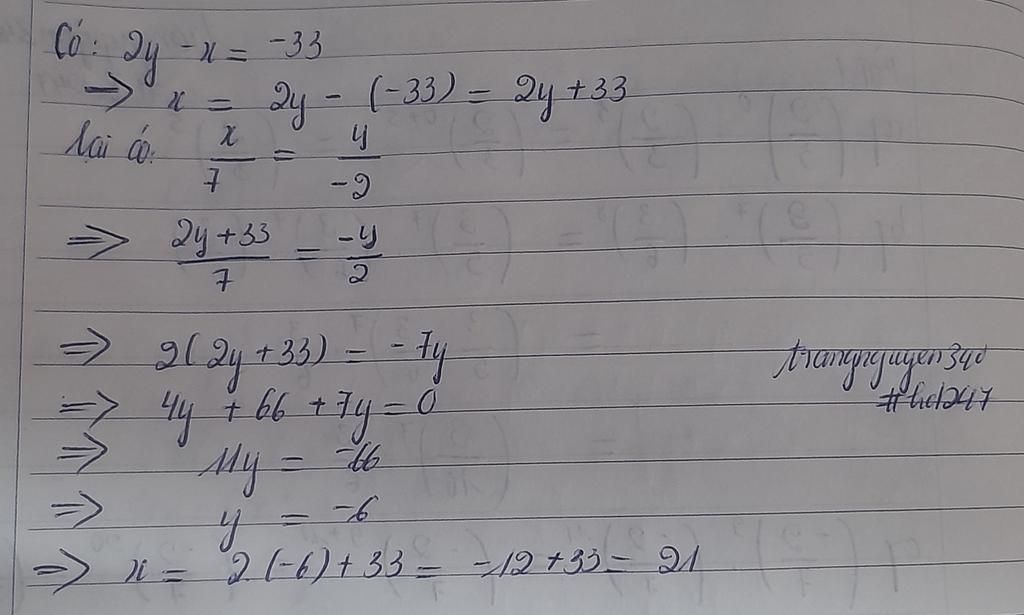 Có: 2y - x = -33
=> x = 2y - (-33) = 2y + 33
Lại có: x/7 = y/-2
=> (2y + 33)/7 = -y/2
=> 2(2y + 33) = -7y
=> 4y + 66 + 7y = 0
=> 11y = -66
=> y = -6
=> x = 2(-6) + 33 = -12 + 33 = 21
#hd247